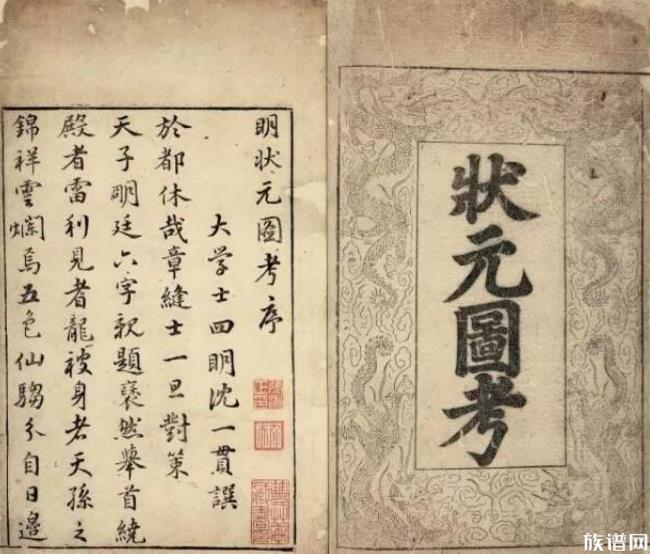 狀元圖考
明狀元圖考序
大学士四明沈一貫譔
於都休哉章縫士一旦對策
天子明廷六字親題褎然舉首繞
殿者雷利見者龍被身者天孫之
錦祥雲爛焉五色仙騶分自日邊
族谱网